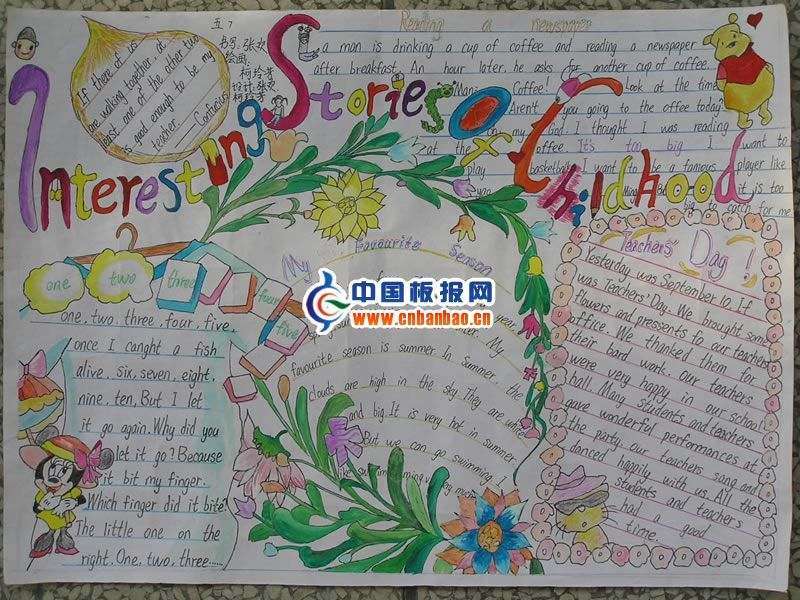 五7
If there of us
are walking together, at
least one of the other two
is good enough to be my
teacher. —Confucius
Interesting Stories of Childhood
Reading a newspaper
a man is drinking a cup of coffee and reading a newspaper
after breakfast. An hour later, he asks for another cup of coffee.
Coffee! Look at the time
Aren't you going to the offee today
my God. I thought I was reading
at the coffee. It's too big I want to
play basketball, I want to be a famous player like
it is too
big to catch for me
one two three four five
one, two, three, four, five,
once I canght a fish
alive. six, seven, eight,
nine, ten. But I let
it go again. Why did you
let it go? Because
it bit my finger.
Which finger did it bite?
The little one on the
right. One, two, three......
My Favourite Season
year,
My
favourite season is summer. In summer, the
clouds are high in the sky. They are white
and big. It is very hot in summer
But we can go swimming. I
中国板报网
www.cnbanbao.cn
Teachers' Day!
Yesterday was September 10. If
was Teachers' Day. We brought some
flowers and pressents to our teachers'
office. We thanked them for
their bard work. our teachers
were very happy in our school
hall. Many students and teachers
gave wonderful performances at
the party. Our teachers sang and
danced happily with us. All the
students and teachers
had a good
time.